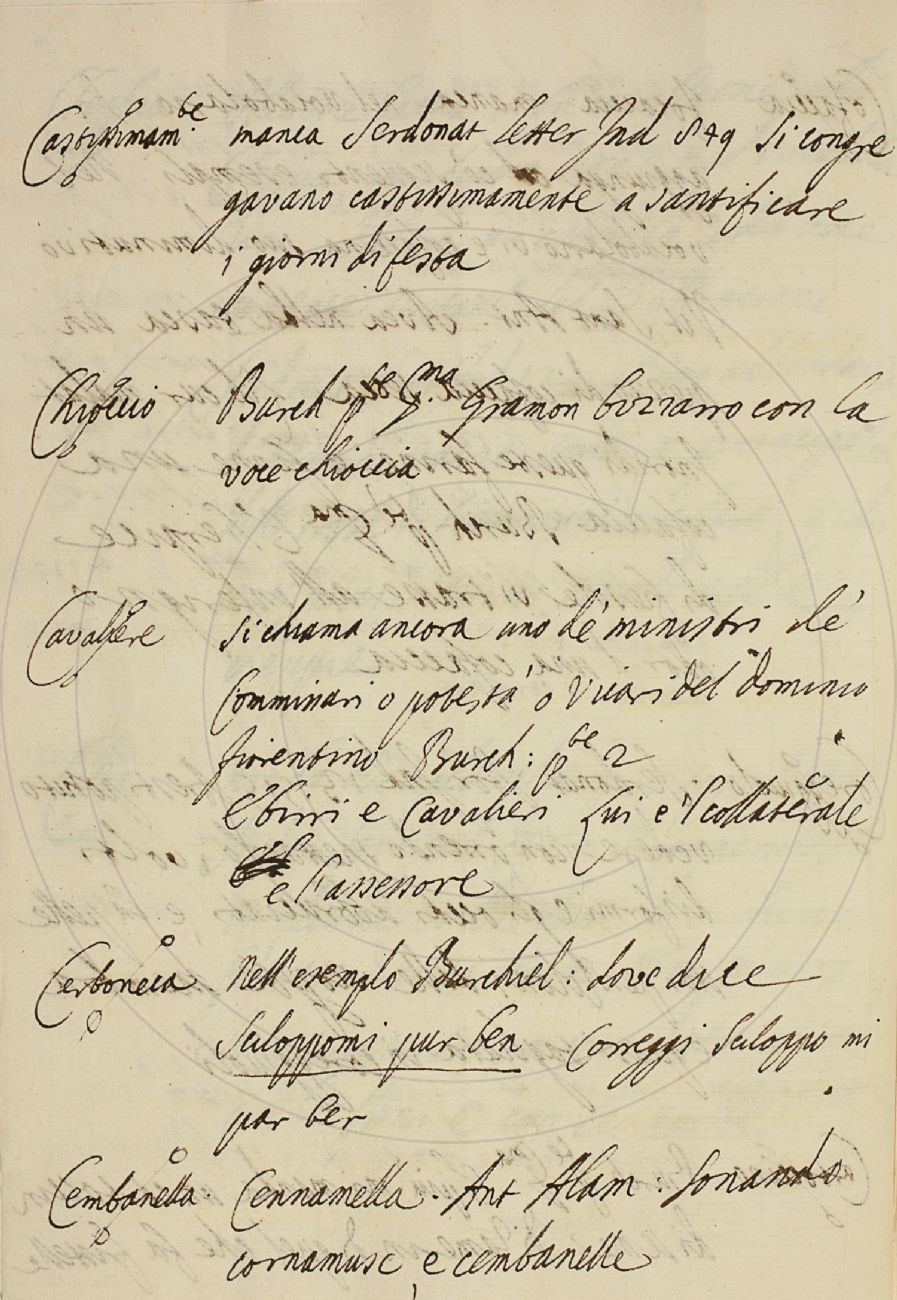 Castissimam.te manca Serdonat Letter Ind 849 Si congre
gavano castissimamente a santificare
i giorni di festa
Chioccio Burch p.te p.ma Gramon bizzarro con la
voce chioccia
Cavaliere si chiama ancora uno de' ministri de'
Commissari o potestà o Vicari del dominio
fiorentino Burch: p.te 2
E' birri e Cavalieri Lui e 'l collaterale
e l'assessore
Cerboneca Nell'esemplo Burchiel: dove dice
Sciloppomi pur ben Correggi Sciloppo mi
par ber
Cembanella Cennamella. Ant Alam: Sonando
cornamuse, e cembanelle